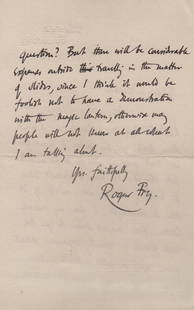 question? But there will be considerable
expenses outside this travelling in the matter
of slides, since I think it would be
foolish not to have a demonstration
with the magic lantern, otherwise many
people will not know at all what
I am talking about.
Yrs. faithfully
Roger Fry.